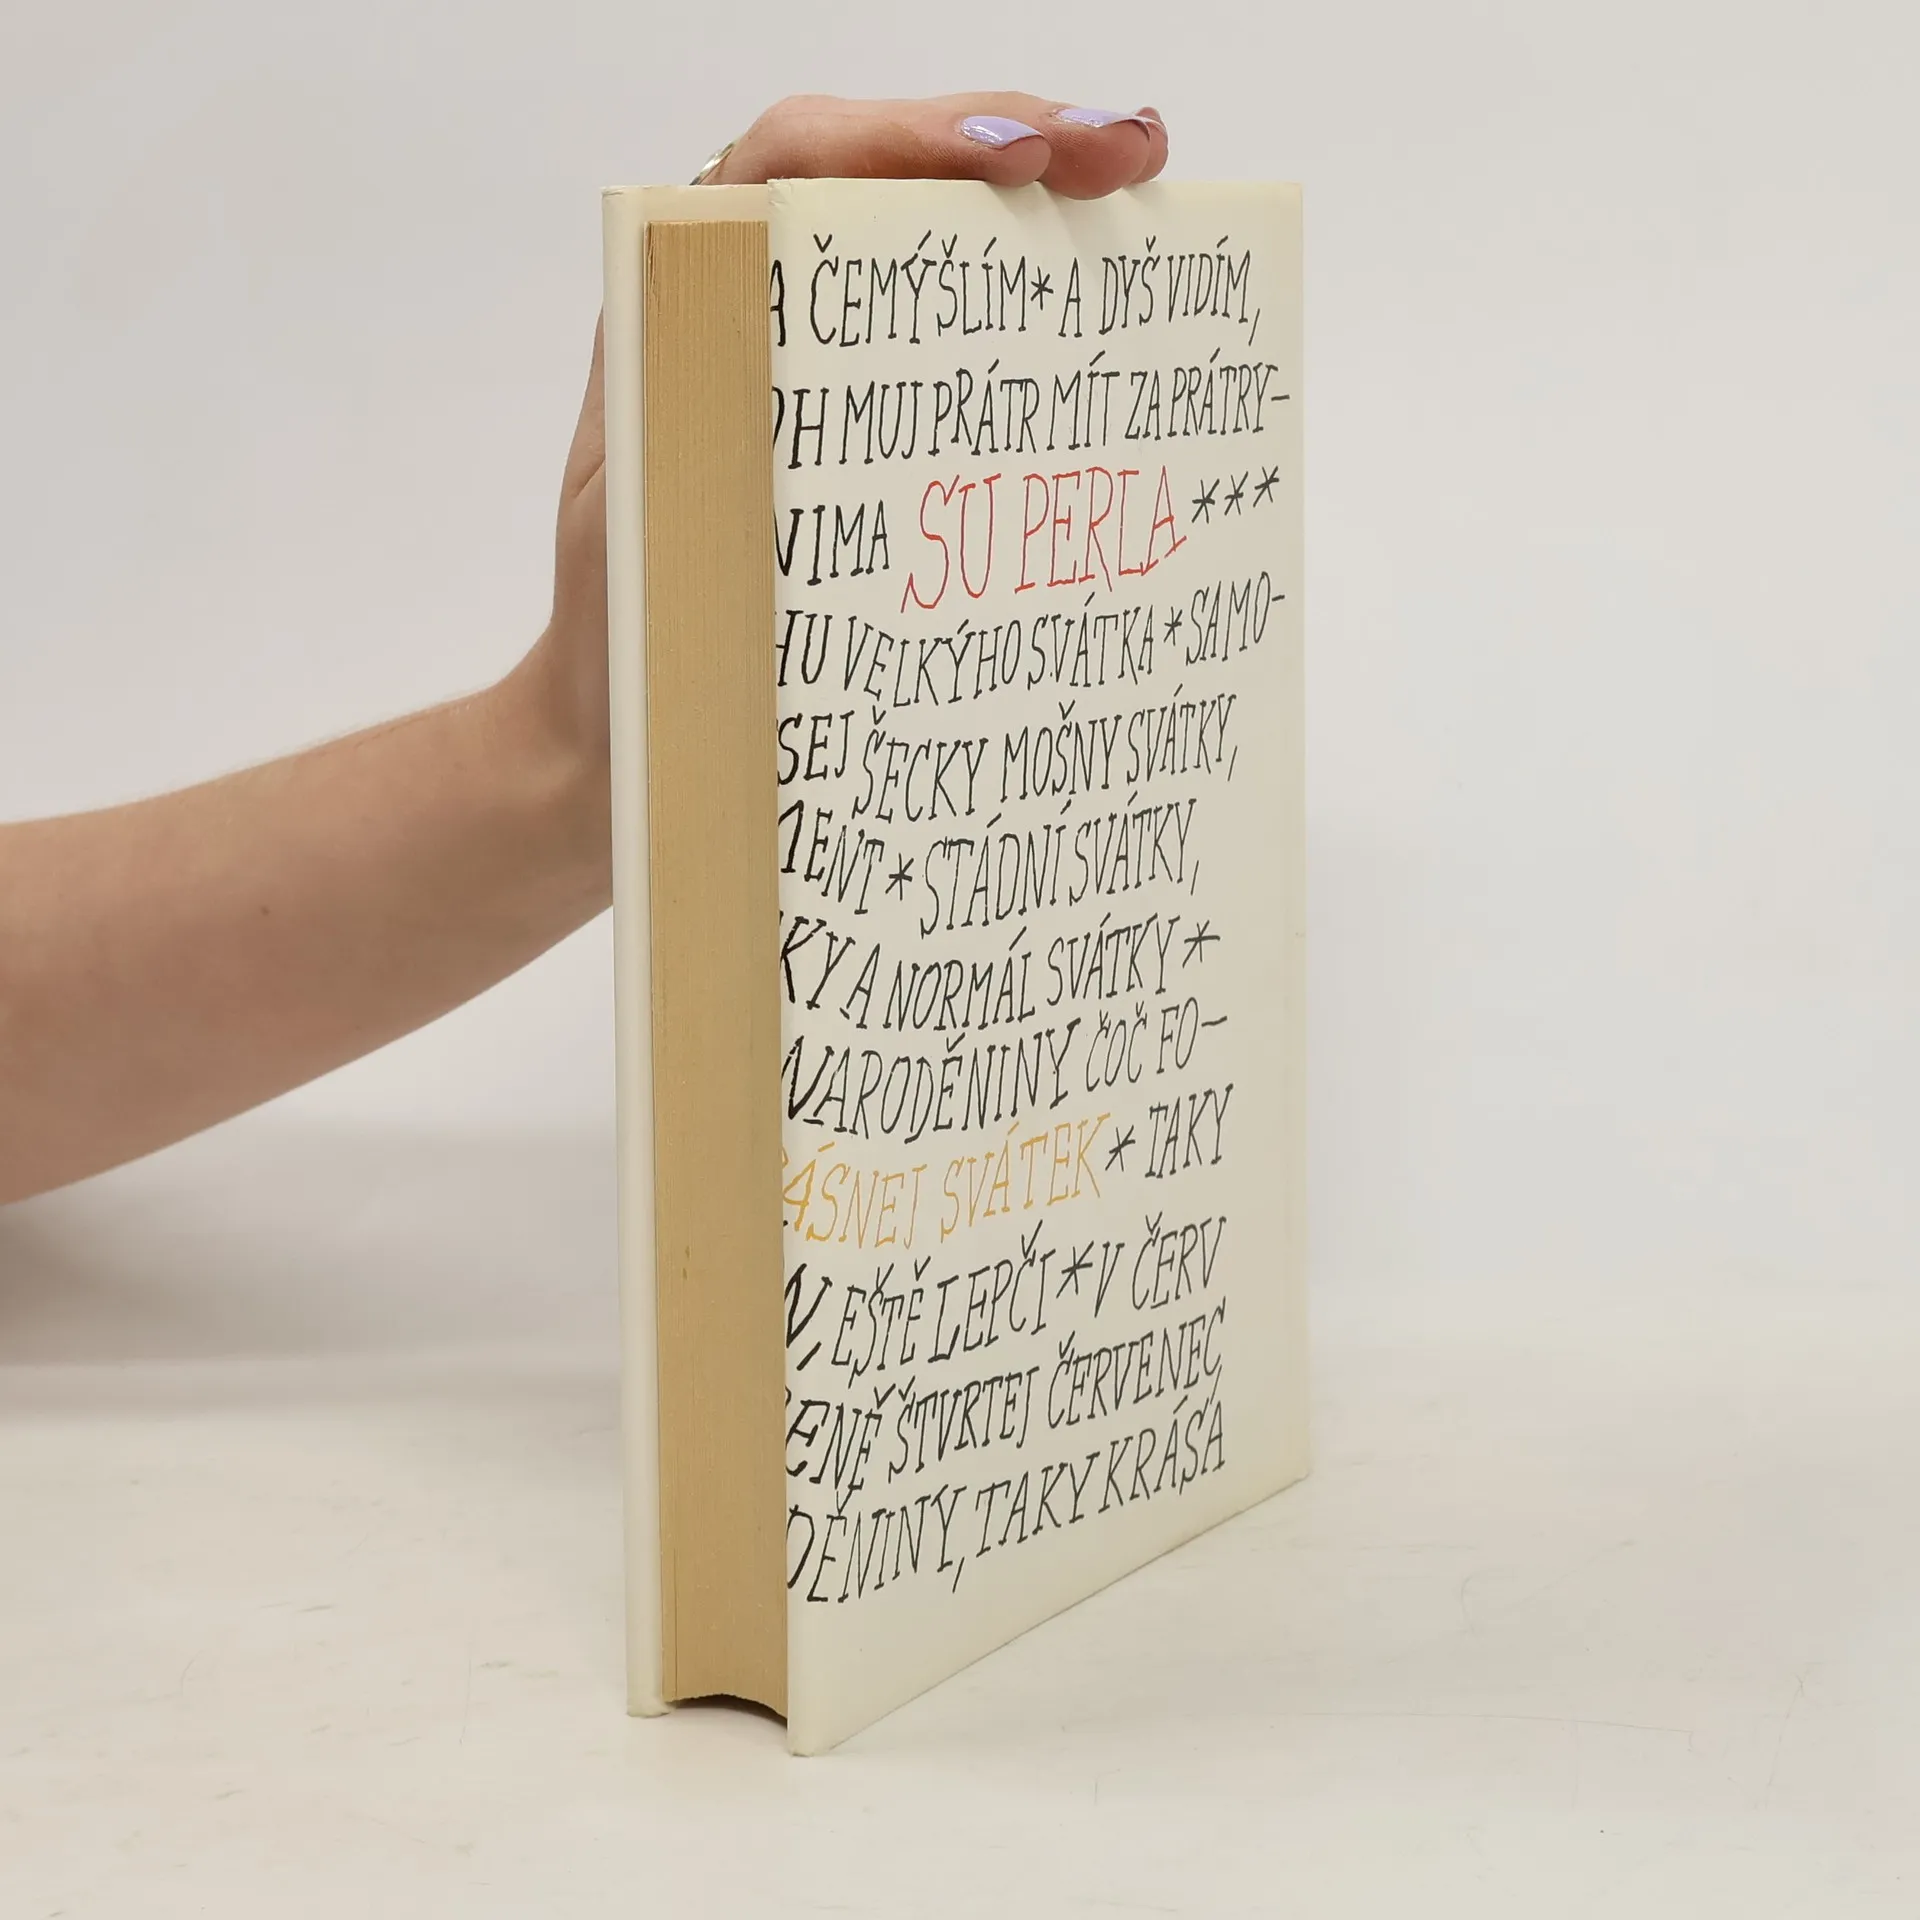 A ČEMÝŠLÍM * A DYŠ VIDÍM,
H MUJ PRÁTR MÍT ZA PRÁTRY-
NIMA SU PERLA ***
HU VELKÝHO SVÁTKA * SAMO-
SEJ ŠECKY MOŠNY SVÁTKY,
MENT * STÁDNÍ SVÁTKY,
KY A NORMÁL SVÁTKY *
NARODĚNINY ČOČ FO-
ÁSNEJ SVÁTEK * TAKY
N, EŠTĚ LEPČI * V ČERV
ENĚ ŠTVRTEJ ČERVENEC
DĚNINY, TAKY KRÁSA